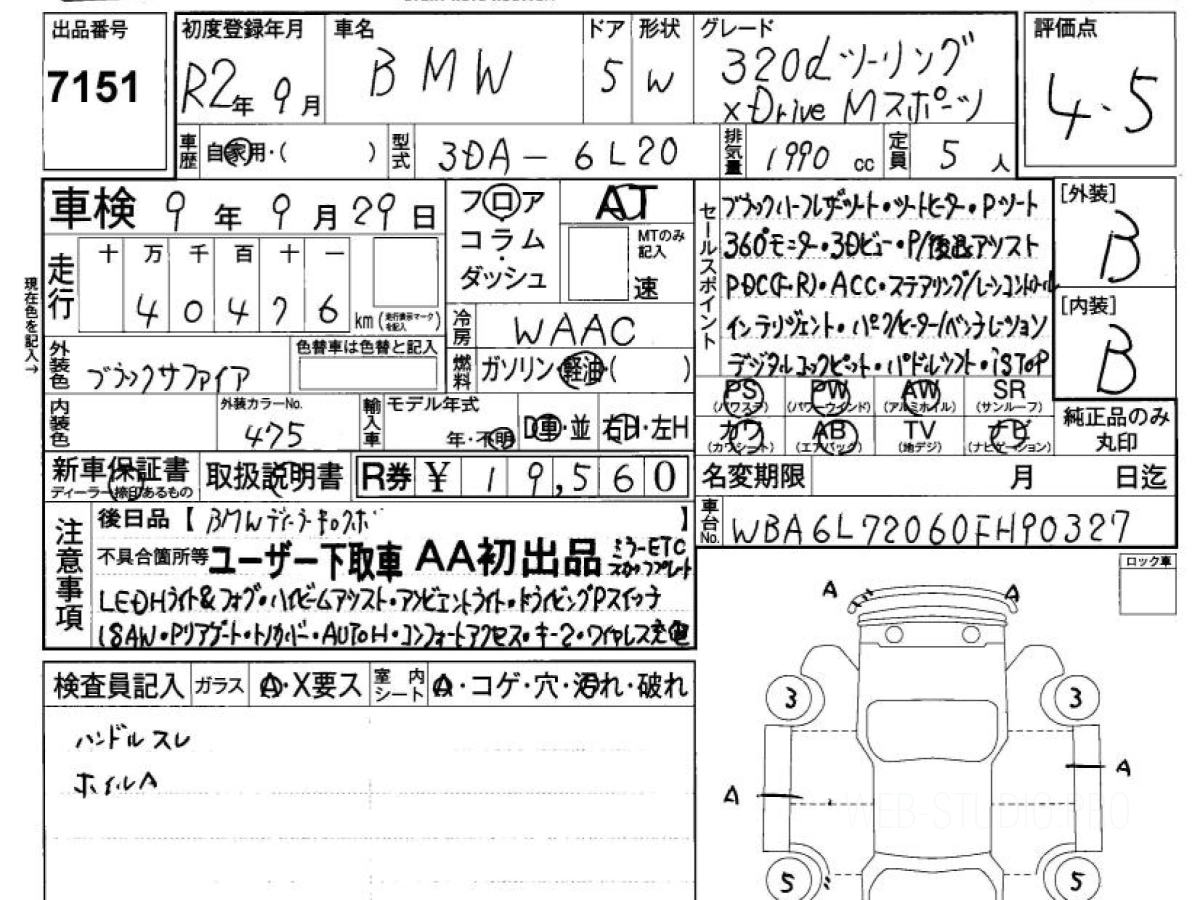 出品番号 初度登録年月 車名 ドア 形状 グレード 評価点
7151 R2年 9月 BMW 5 W 320d ツーリング
xDrive Mスポーツ
4.5
車歴 自家用・( ) 型式 3DA-6L20 排気量 1990 cc 定員 5 人
車検 9年 9月 29日
フロア
コラム
ダッシュ
AT
MTのみ記入
速
走行 十 万 千 百 十 一
4 0 4 7 6 km (走行表示マークを記入)
現在色を記入→
冷房 WAAC
外装色 ブラックサファイア
色替車は色替と記入
燃料 ガソリン・軽油( )
内装色
外装カラーNo.
475
輸入車 モデル年式
年・不明 D車・並 右H・左H
セールスポイント
ブラックハーフレザーシート・シートヒーター・Pシート
360°モニター・3Dビュー・P/後退アシスト
PDC(F・R)・ACC・ステアリング/レーンコントロール
インテリジェント・パーク/ヒーター/ベンチレーション
デジタルコックピット・パドルシフト・iSTOP
PS PW AW SR
(パワステ) (パワーウインド) (アルミホイル) (サンルーフ)
カワ AB TV ナビ
(カワシート) (エアバッグ) (地デジ) (ナビゲーション)
[外装]
B
[内装]
B
純正品のみ
丸印
新車保証書
ディーラー捺印あるもの
取扱説明書 R券 ¥ 19,560
名変期限 月 日迄
車台No. WBA6L72060FH90327
注意事項
後日品【 BMWディーラーキロクボ 】
不具合箇所等 ユーザー下取車 AA初出品 ミラーETC
スカッフプレート
LEDHライト&フォグ・ハイビームアシスト・アンビエントライト・ドライビングPスイッチ
18AW・Pリアゲート・トノカバー・AUTOH・コンフォートアクセス・キー2・ワイヤレス充電
ロック車
検査員記入 ガラス A・X要ス 室内シート A・コゲ・穴・汚れ・破れ
ハンドルスレ
ホイルA
A A
3 3
A A
5 5
WEB-STUDIO.PRO